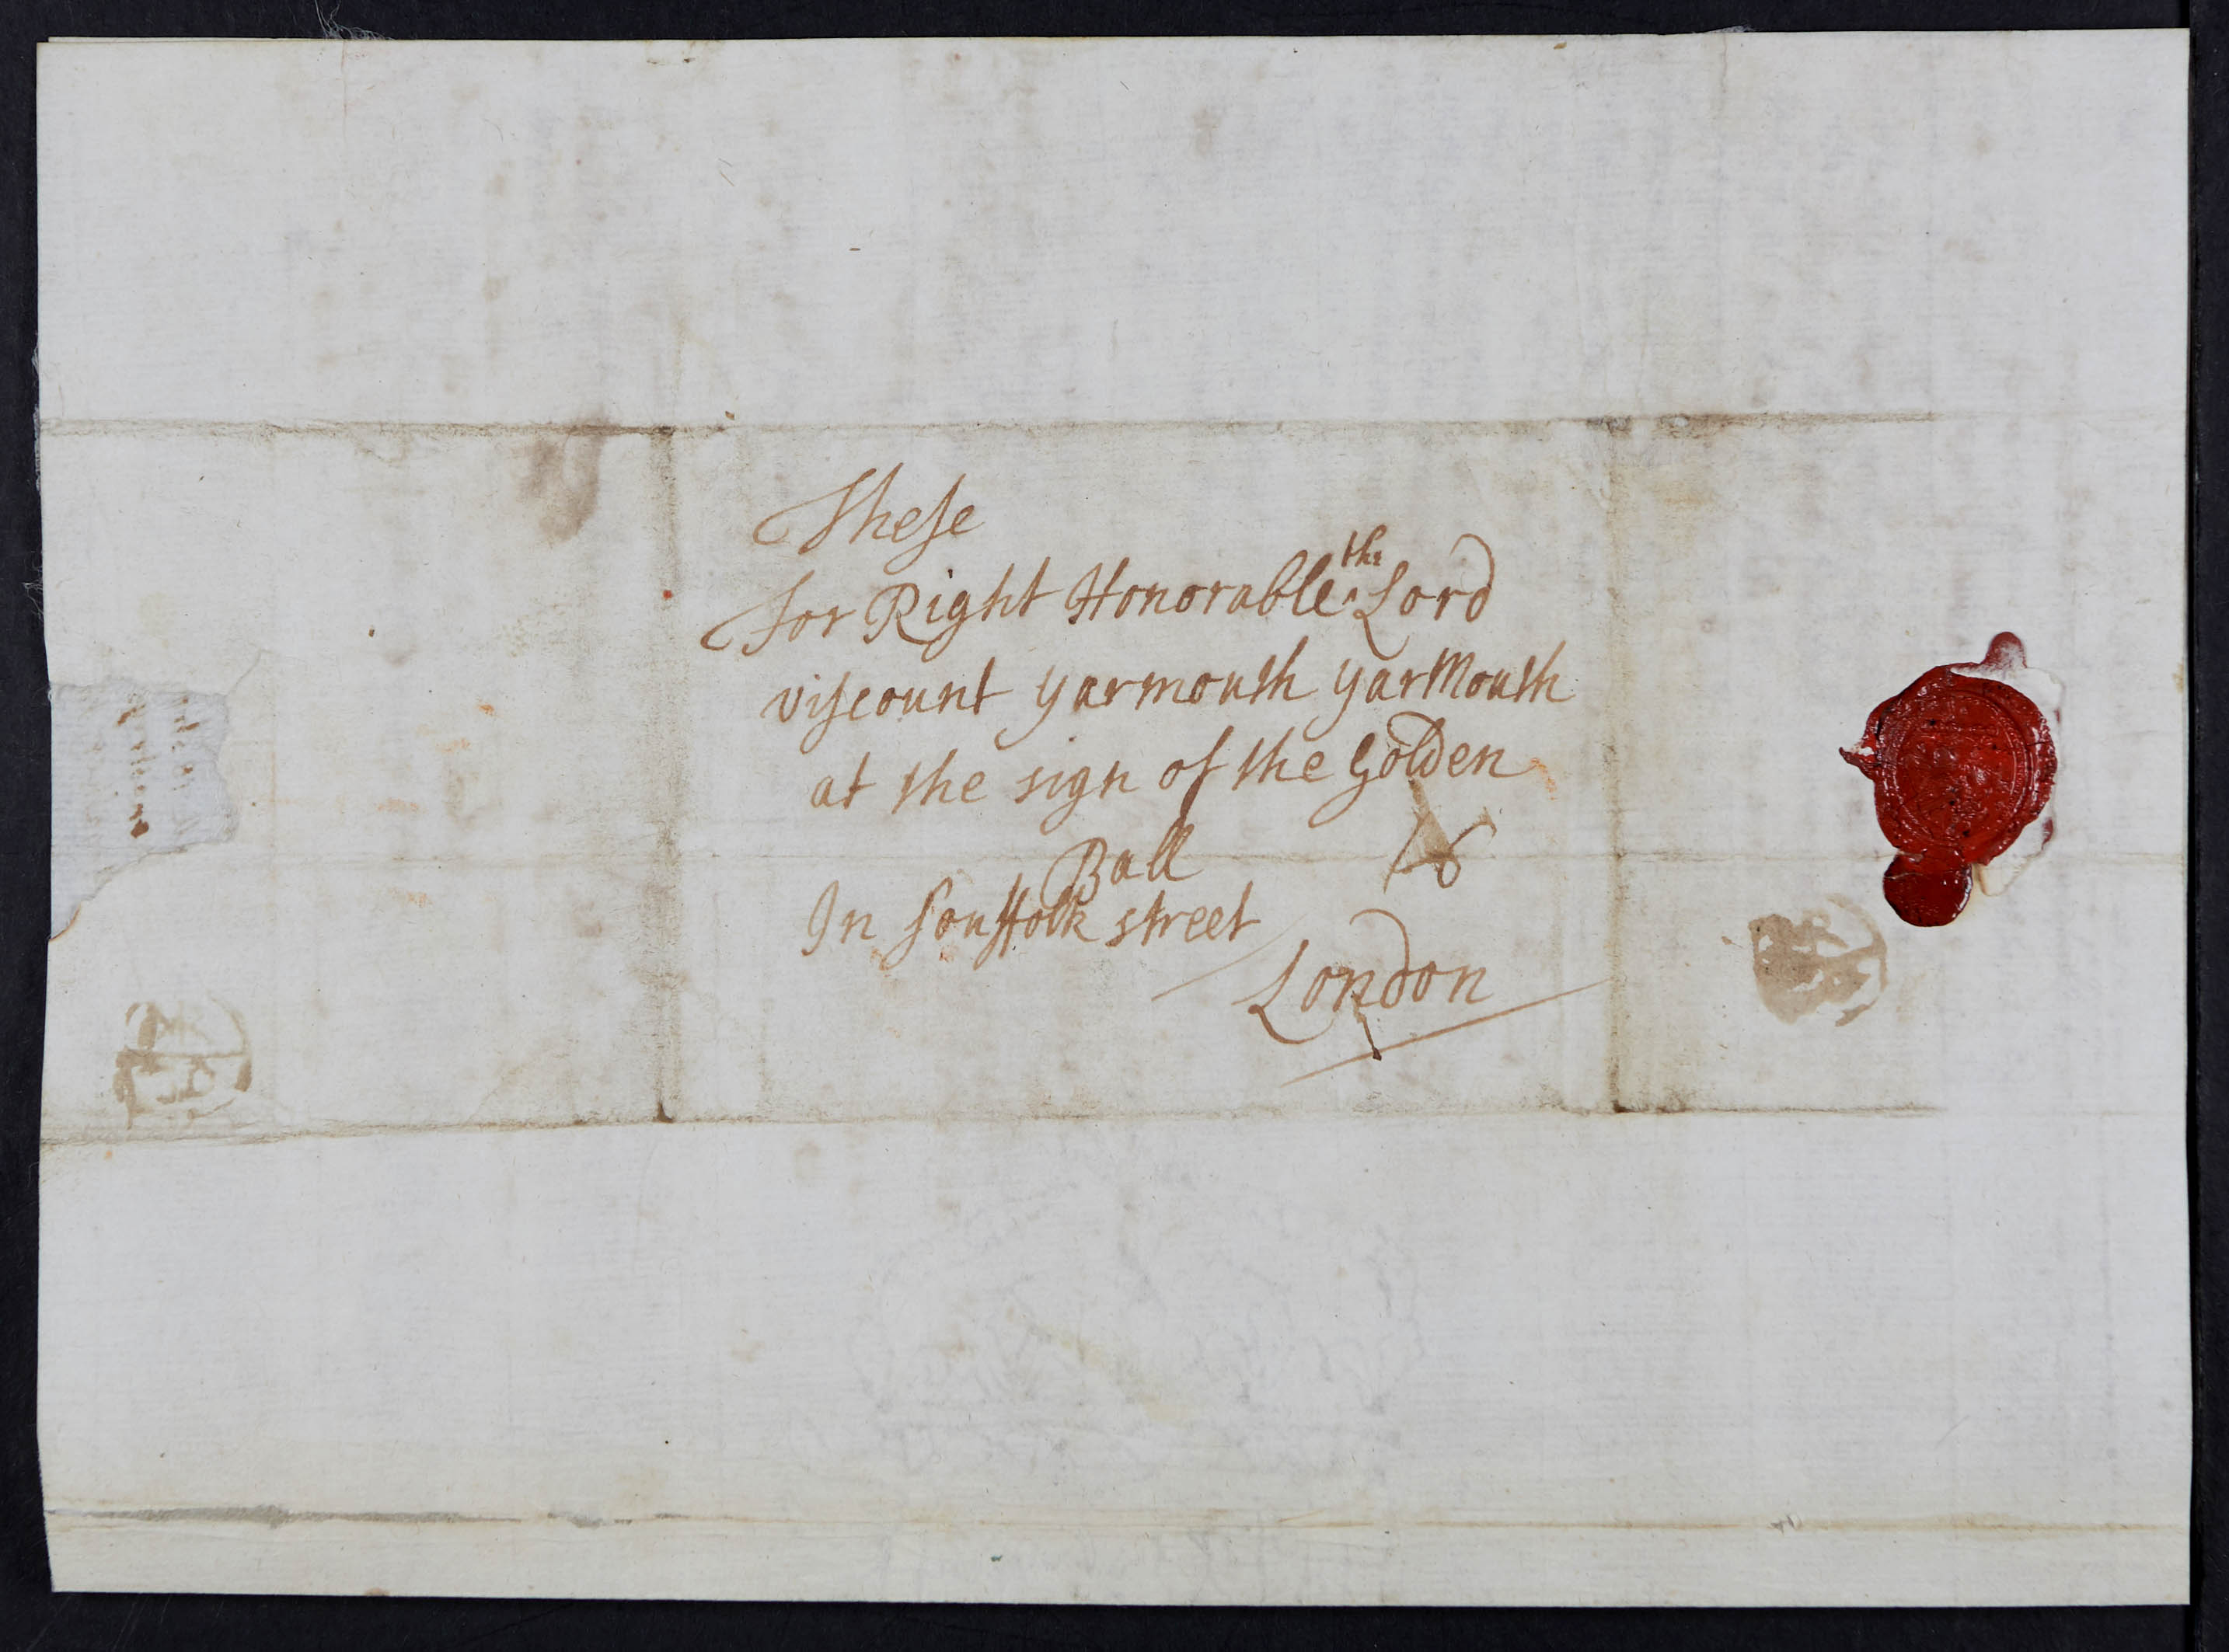 These
for Right Honorable ^the Lord
viscount yarmouth yarMouth
at the sign of the golden
Ball
In souffolk street
London